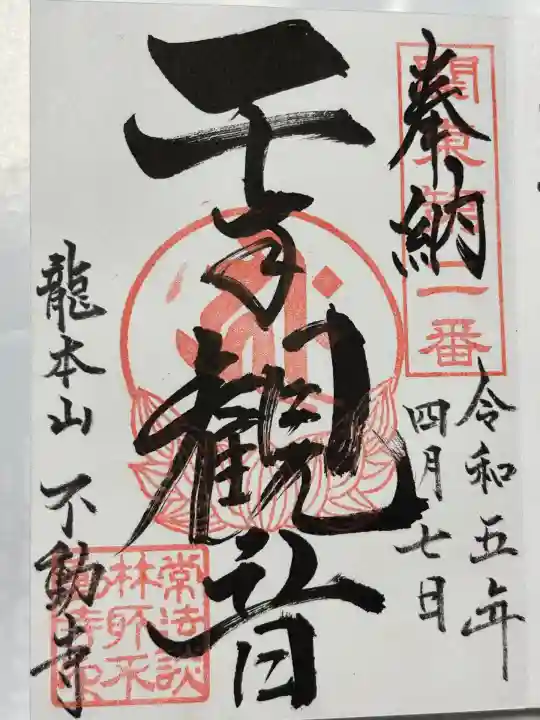 奉納
令和五年
四月七日
千手観音
龍本山 不動寺
二番
常法談
林所不